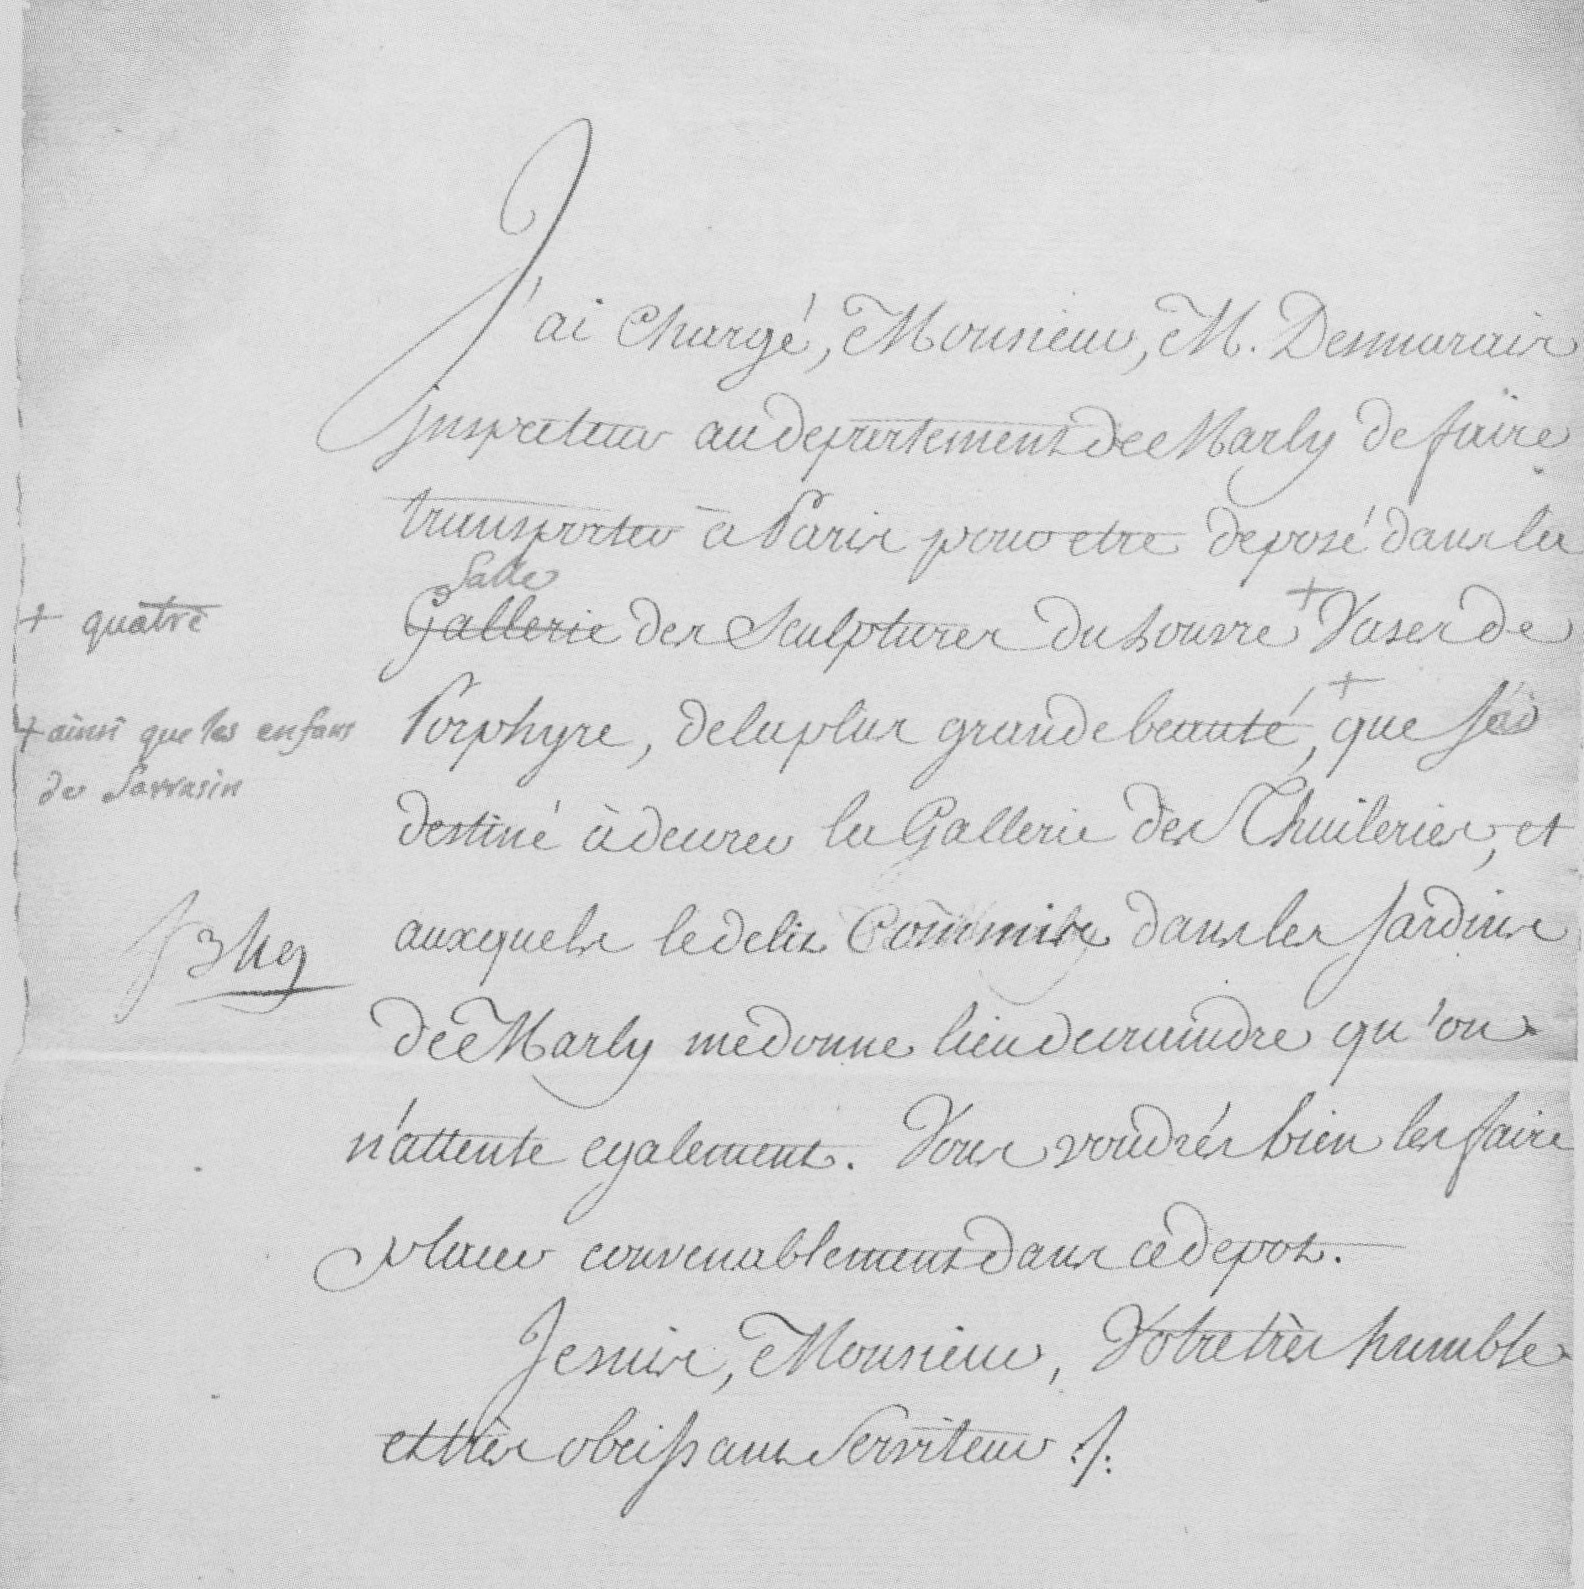 J'ai Chargé, Monsieur, M. Desmarais
inspecteur au departement de Marly de faire
transporter à Paris pour etre deposé dans la
Salle
Gallerie des Sculptures du Louvre + Vases de
+ quatre
Porphyre, de la plus grande beauté, + que j'ai
+ ainsi que les enfans
de Sarrasin
destiné à decorer la Gallerie des Thuileries, et
auxquels le delit Commis dans les Jardins
de Marly me donne lieu de craindre qu'on
n'attente egalement. Vous voudrés bien les faire
placer convenablement dans ce depot.
Je suis, Monsieur, Votre très humble
et très obeissant Serviteur ./.